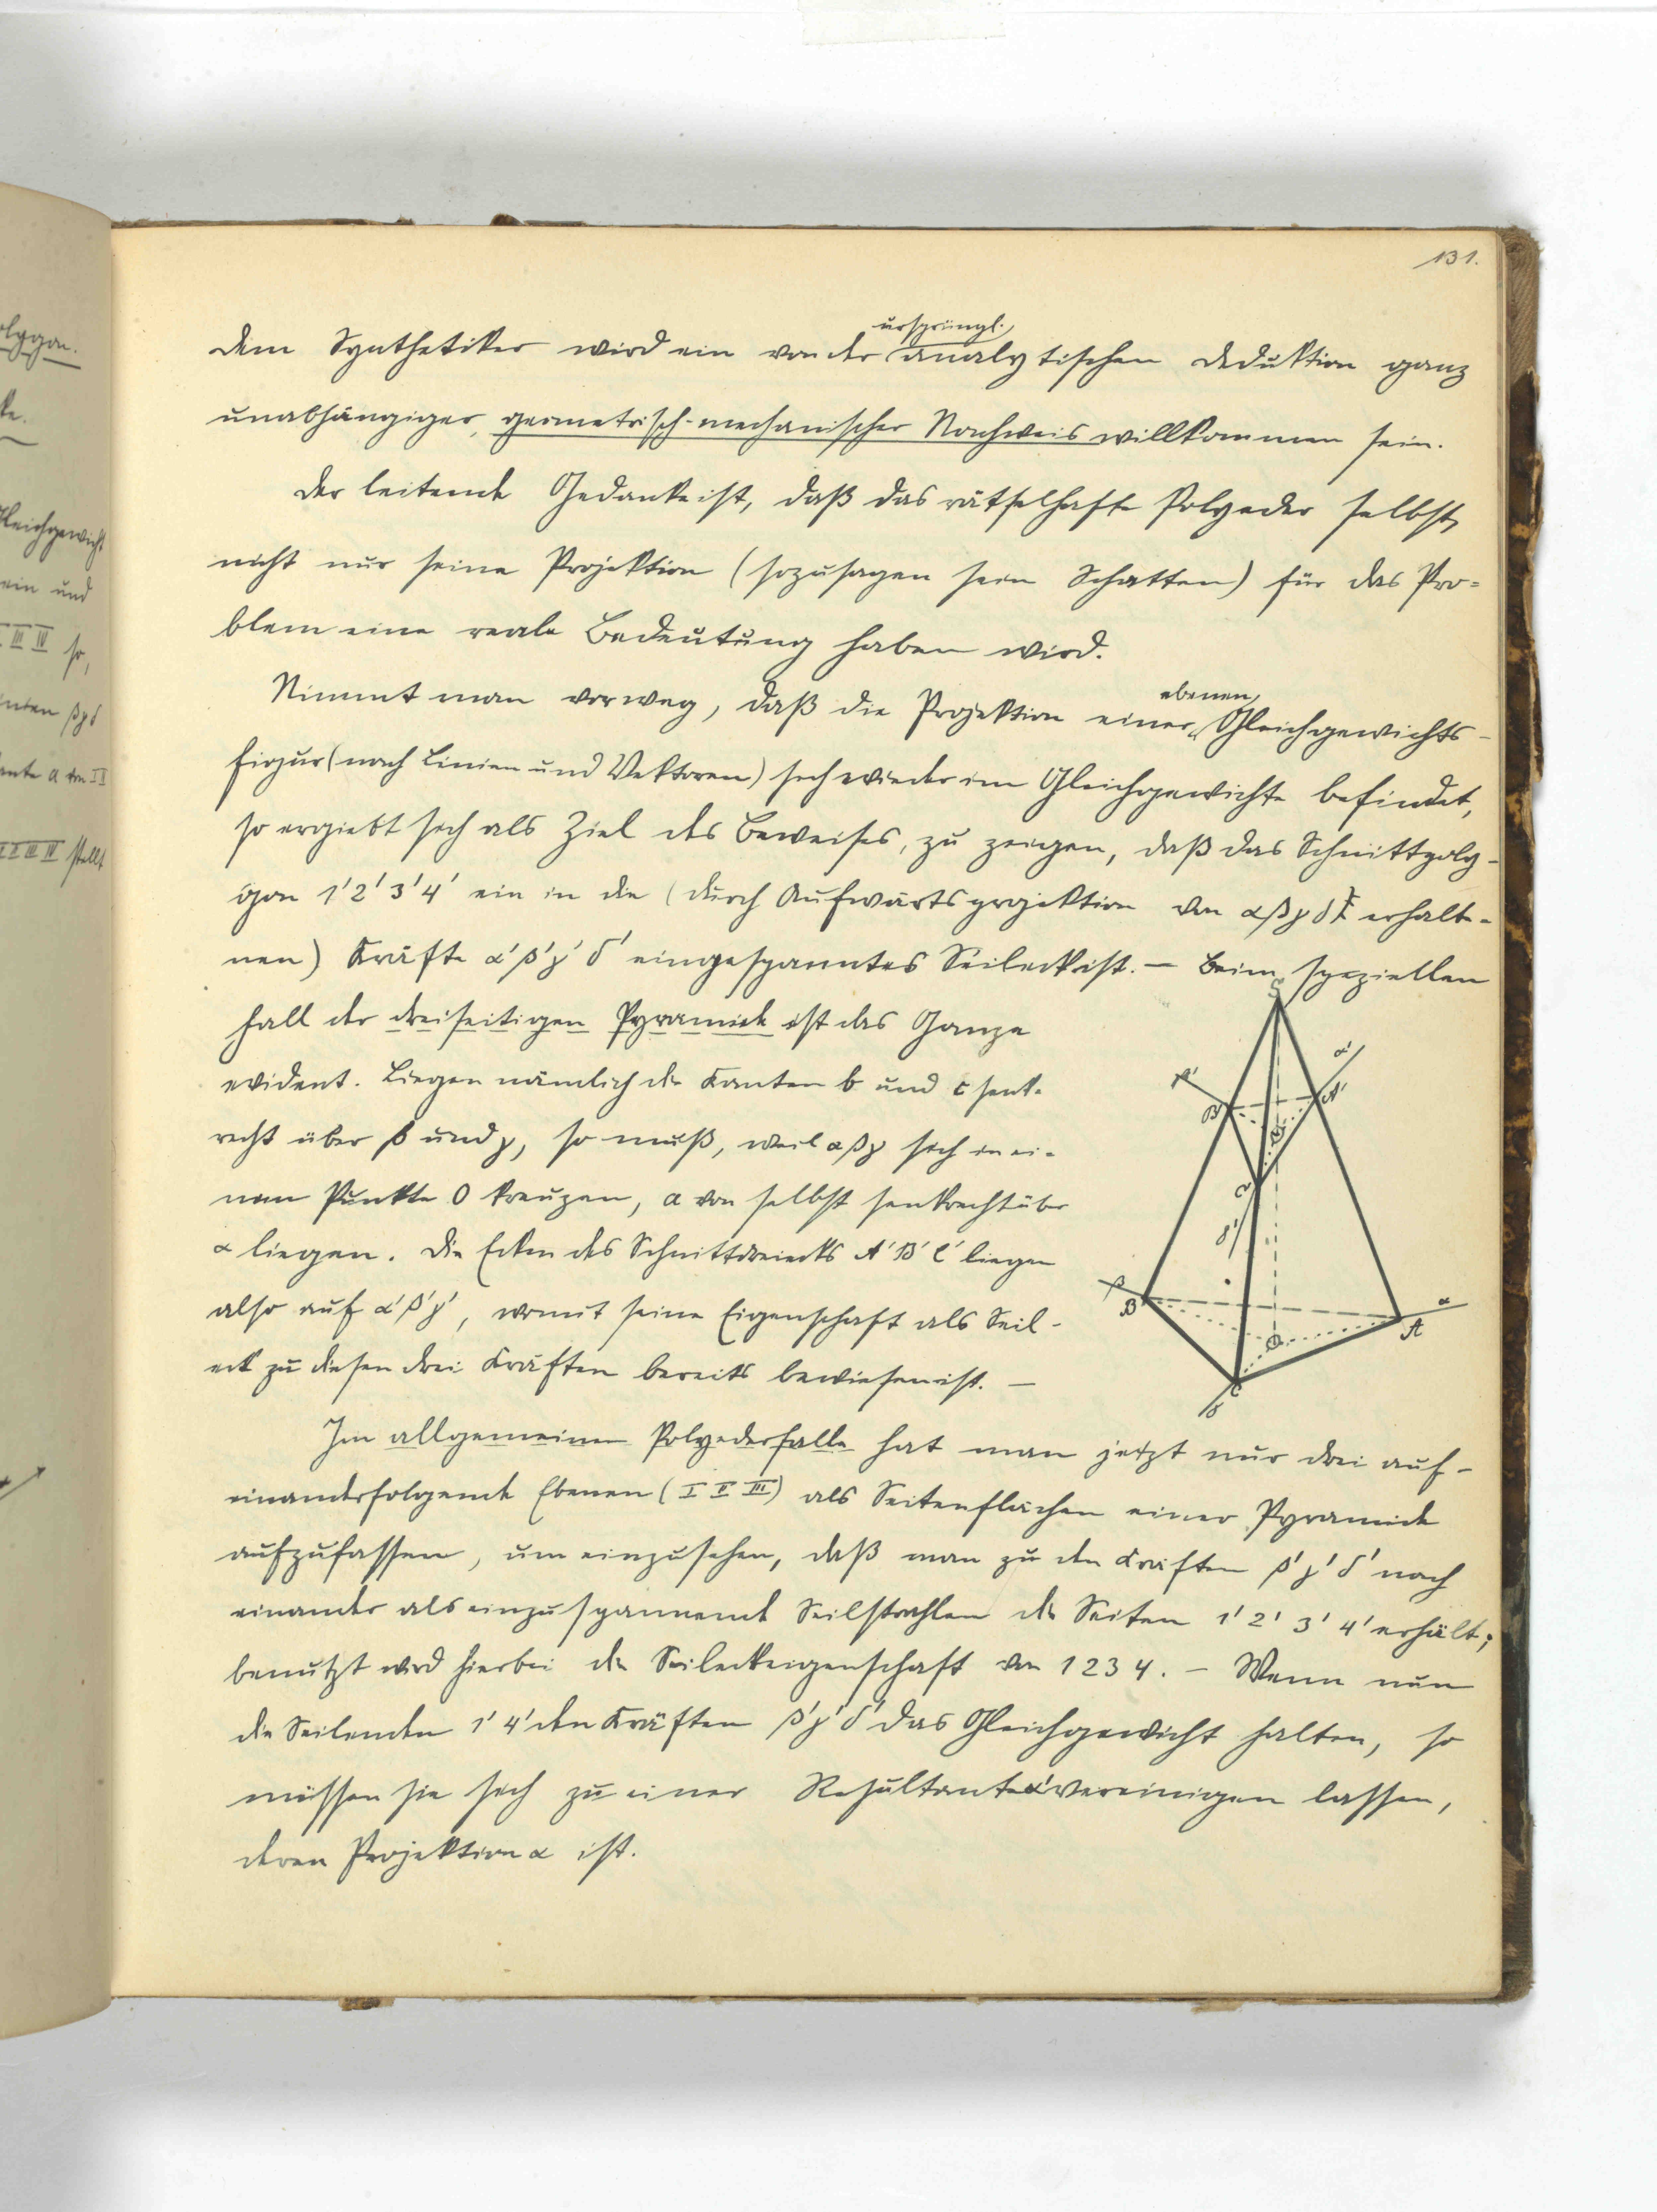 131.
olygon.
ke.
Gleichgewicht
ein und
III IV so,
βγδ
III IV stellt
ursprüngl.
dem Synthetiker wird ein von der analytischen Deduktion ganz
unabhängiger, geometrisch-mechanischer Nachweis willkommen sein.
Der leitende Gedanke ist, daß das rätselhafte Polyeder selbst,
nicht nur seine Projektion (sozusagen sein Schatten) für das Pro=
blem eine reale Bedeutung haben wird.
ebenen
Nimmt man vorweg, daß die Projektion einer Gleichgewichts-
figur (nach Linien und Vektoren) sich wieder im Gleichgewichte befindet,
so ergiebt sich als Ziel des Beweises, zu zeigen, daß das Schnittpoly-
gon 1'2'3'4' ein in die (durch Aufwärtsprojektion von αβγδ erhalte-
nen) Kräfte α'β'γ'δ' eingespanntes Seileck ist. — Beim speziellen
Fall der dreiseitigen Pyramide ist das Ganze
evident. Liegen nämlich die Kanten b und c senk-
recht über β und γ, so muß, weil αβγ sich in ei-
nem Punkte O kreuzen, a von selbst senkrecht über
α liegen. Die Ecken des Schnittdreiecks A'B'C' liegen
also auf α'β'γ', womit seine Eigenschaft als Seil-
eck zu diesen drei Kräften bereits bewiesen ist. —
S
α'
β'
B'
A'
O'
C'
γ'
β
B
α
A
O
C
γ
Im allgemeinen Polyederfalle hat man jetzt nur drei auf-
einanderfolgende Ebenen (I II III) als Seitenflächen einer Pyramide
aufzufassen, um einzusehen, daß man zu den Kräften β'γ'δ' nach
einander als einzuspannende Seilstrahlen die Seiten 1' 2' 3' 4' erhält;
benutzt wird hierbei die Seileckeigenschaft von 1 2 3 4. — Wenn nun
die Seilenden 1' 4' den Kräften β'γ'δ' das Gleichgewicht halten, so
müssen sie sich zu einer Resultante α' vereinigen lassen,
deren Projektion α ist.